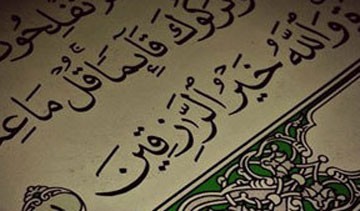 تُفْلِحُو
تَرَكُوكَ قَآئِمًا قُلْ مَا عِ
وَاللَّهُ خَيْرُ الرَّٰزِقِينَ